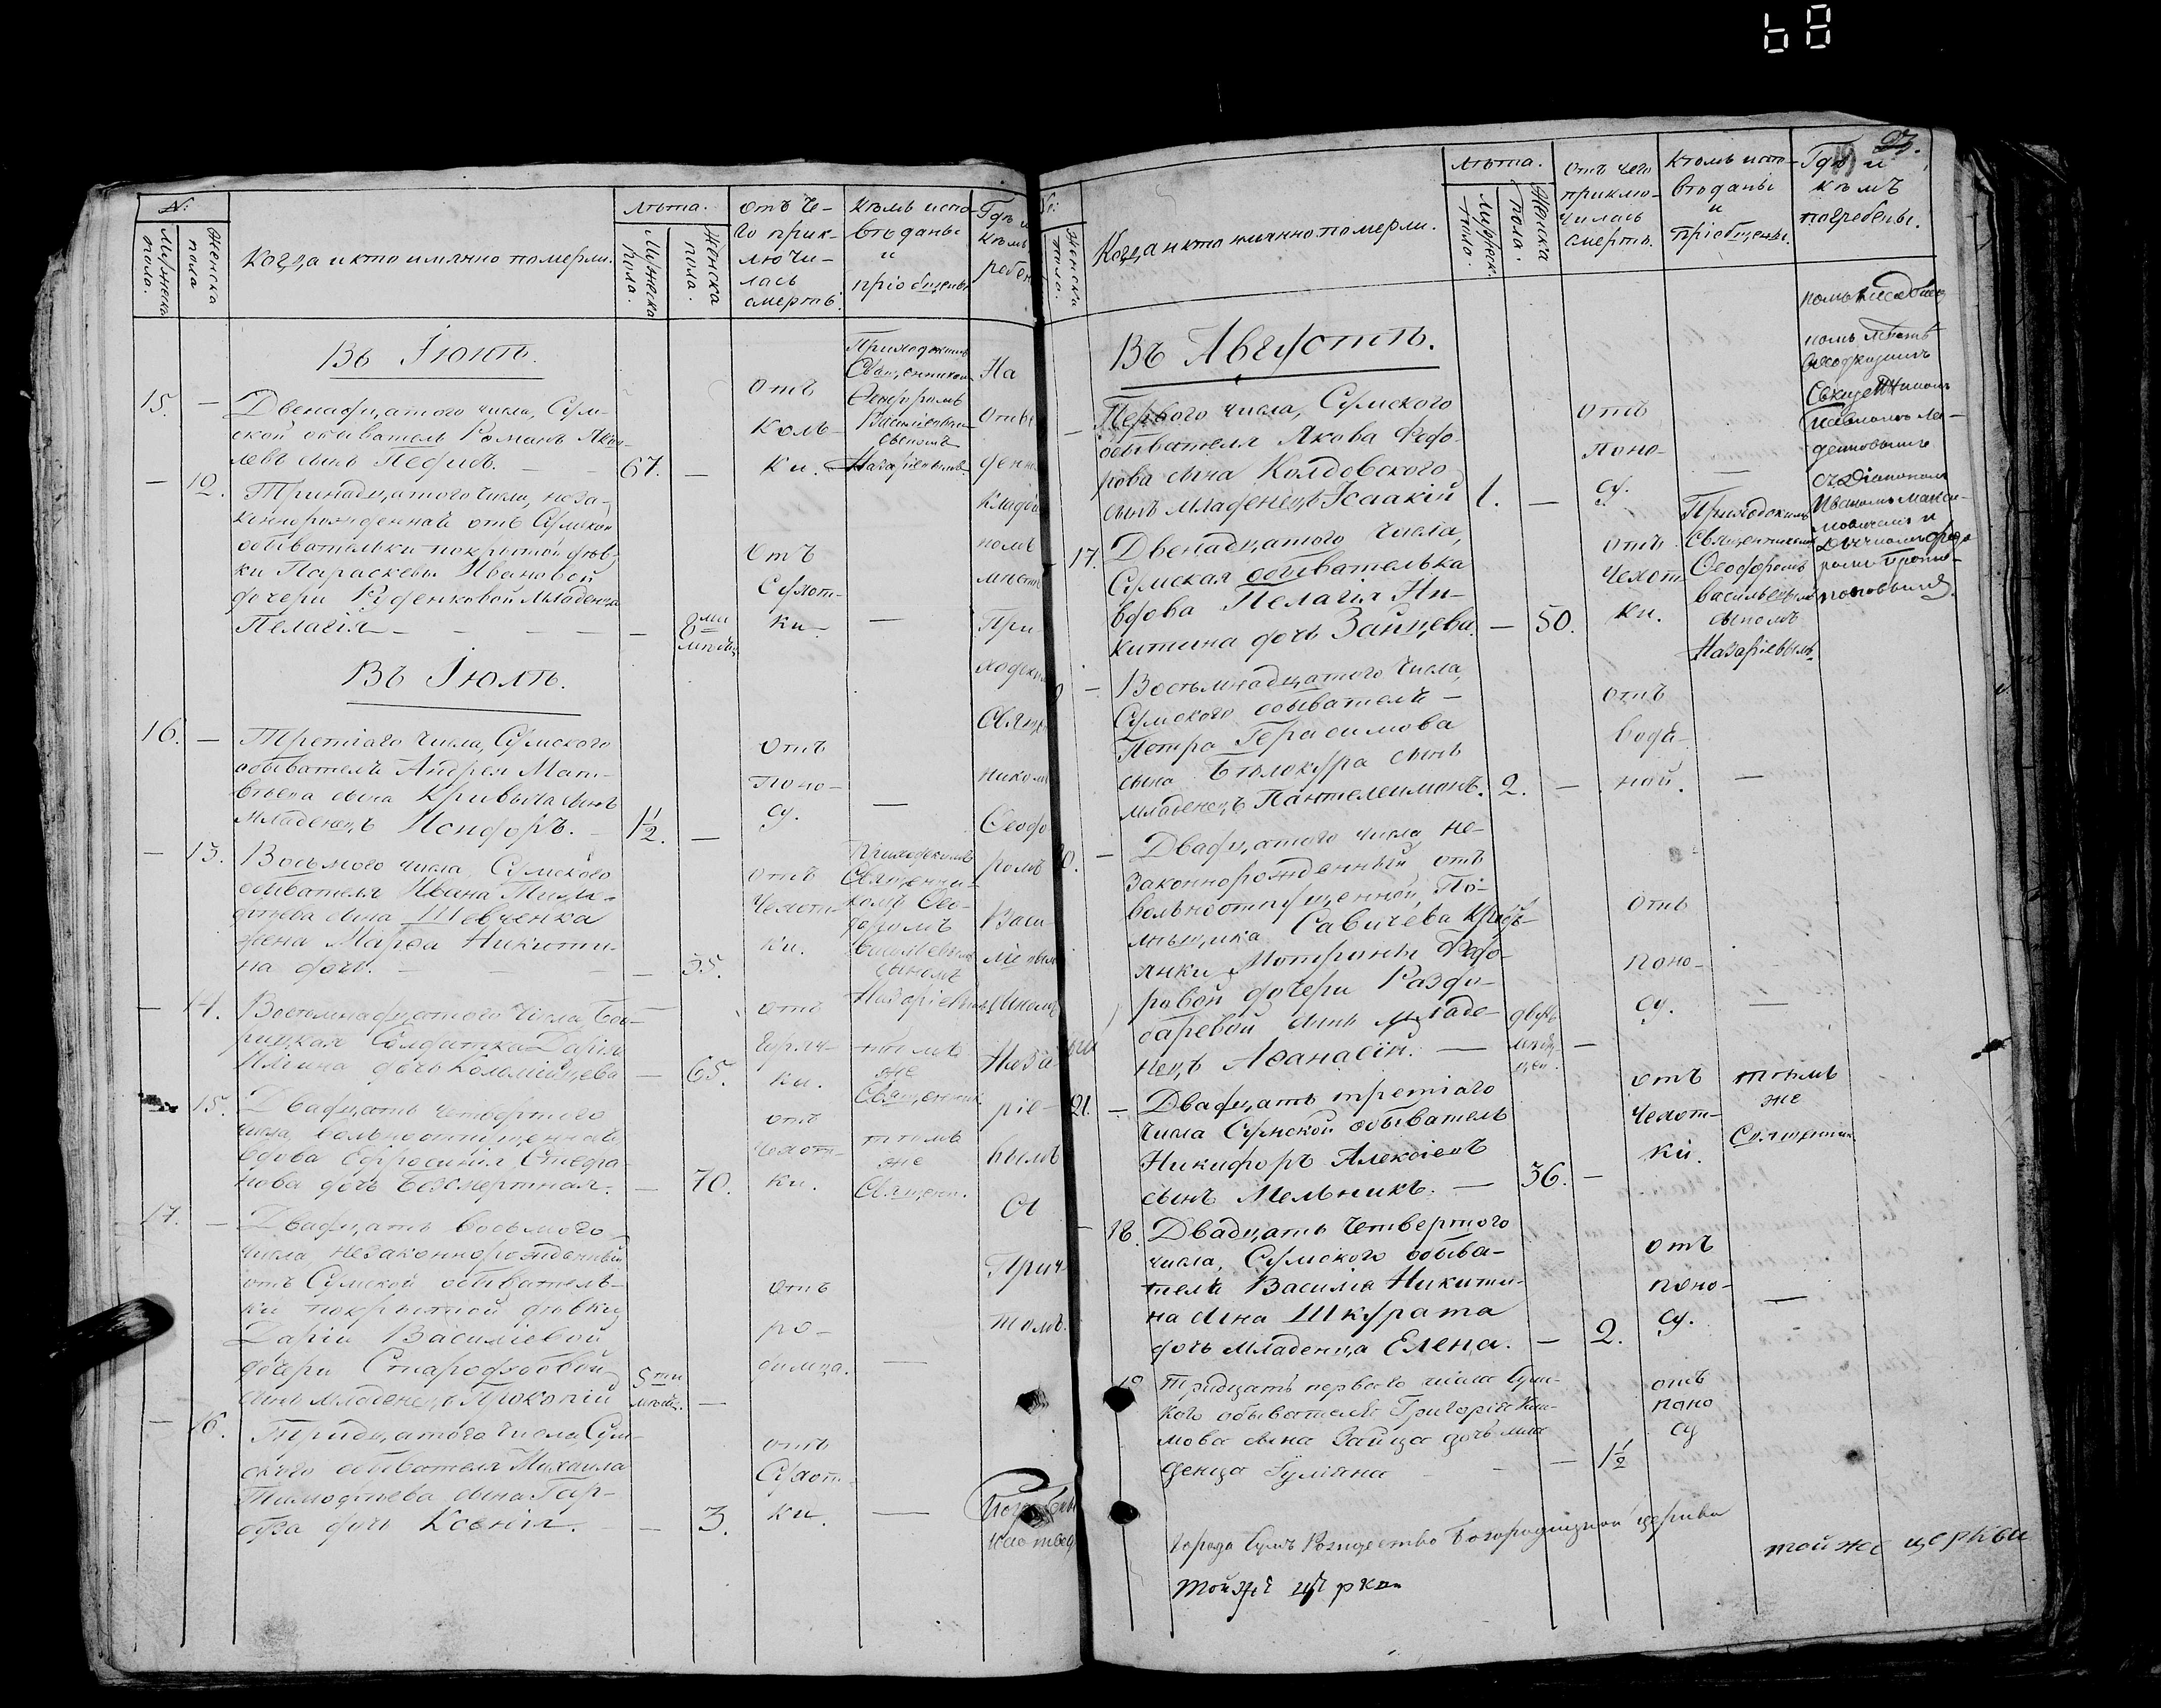 68
№:
Мужеска пола.
Женска пола
Когда и кто имянно померли.
Лѣта.
Мужеска пола.
Женска пола.
Отъ че-
го прик-
лючи-
лась
смерть.
Кѣмъ испо-
вѣданы
и
пріобщены
Гдѣ и
кѣмъ
Въ Іюнѣ.
15. —
Двенадцатого числа, Сум-
ской обыватель Романъ Яков-
левъ сынъ
67. —
Отъ
коль-
ки.
Приходскимъ
Священникомъ
Феодоромъ
Васильевымъ
сыномъ
Назаріевымъ
— 12.
Тринадцатого числа, неза-
коннорожденная отъ Сумской
обывательки покрытой дѣв-
ки Параскевы Ивановой
дочери Руденковой младенца
Пелагія — — — —
— 8ми
мѣсяц.
Отъ
Сухот-
ки.
—
Въ Іюлѣ.
16. —
Третіаго числа, Сумского
обывателя Андрея Мат-
вѣева сына Кривыча сынъ
младенецъ Никифоръ. —
1½. —
Отъ
Поно-
су.
—
— 13.
Восьмого числа Сумского
обывателя Ивана Тимо-
фѣева сына Шевченка
жена Марфа Никити-
на дочь. —
— 35.
Отъ
Чехот-
ки.
Приходскимъ
Священни-
комъ Фео-
доромъ
Васильевымъ
сыномъ
Назаріевымъ
— 14.
Восемнадцатого числа
Солдатка Дарія
Ильина дочь Коломійцева
— 65.
Отъ
Горяч-
ки.
тѣмъ
же
Священник.
— 15.
Двадцать четвертого
числа, вольноотпущенная
вдова Ефросинія Стефа-
нова дочь Безсмертная.
— 70.
Отъ
Чехот-
ки.
тѣмъ
же
Священ.
17. —
Двадцать восьмого
числа незаконнорожденный
отъ Сумской обыватель-
ки покрытой дѣвки
Даріи Василіевой
дочери Стародубовой
сынъ младенецъ Прокопій
5ти
мѣсяц. —
Отъ
ро-
димца.
—
— 16.
Тридцатого числа Сум-
ского обывателя Михаила
Тимофѣева сына Гар-
буза дочь Ксенія.
— 3.
Отъ
Сухот-
ки.
—
На
Отве
денн
кладби
номъ
мѣстѣ
При-
ходски
Священ
никомъ
Феодо
ромъ
Васи
льевым
сыномъ
Наза-
ріе-
вымъ
съ
Прич-
томъ.
Женска пола.
Когда и кто имянно померли.
Лѣта.
Мужеск. пола.
Женска пола.
Отъ чего
приклю-
чилась
смерть.
Кѣмъ испо-
вѣданы
и
пріобщены.
Гдѣ и
кѣмъ
погребены.
Въ Августѣ.
—
Первого числа, Сумского
обывателя Якова Федо-
рова сына Колдовского
сынъ младенецъ Исаакій
1. —
Отъ
Поно-
су.
—
17.
Двенадцатого числа,
Сумская обывателька
вдова Пелагія Ни-
китина дочь Зайцева.
— 50.
Отъ
Чехот-
ки.
Приходскимъ
Священникомъ
Феодоромъ
Васильевымъ
сыномъ
Назаріевымъ
—
Восемнадцатого числа,
Сумского обывателя —
Петра Герасимова
сына Бѣлокура сынъ
младенецъ Пантелеимонъ.
2. —
Отъ
водя-
ной.
—
20. —
Двадцатого числа не-
законнорожденный отъ
вольноотпущенной, По-
мѣщика Савичева Крестъ-
янки Мотроны Федо-
ровой дочери
сынъ младе-
нецъ Афанасій. —
двухъ
мѣся-
цей. —
Отъ
поно-
су.
—
21. —
Двадцать третіаго
числа Сумской обыватель
Никифоръ Алексіевъ
сынъ Мельникъ. —
36. —
Отъ
Чехот-
ки.
тѣмъ
же
Священник.
— 18.
Двадцать четвертого
числа, Сумского обыва-
теля Василія Никити-
на сына Шкурата
дочь младенца Елена.
— 2.
Отъ
поно-
су.
—
19
Тридцать первого числа Сумс-
кого обывателя Григорія Кли-
мова сына Зайца дочь мла-
денца Іуліана
— 1½
отъ
поно
су
Священникомъ
Павломъ
съ Діакономъ
Иваномъ
города Сумъ Рождество Богородицкой церкви
той же церкви
той же церкви